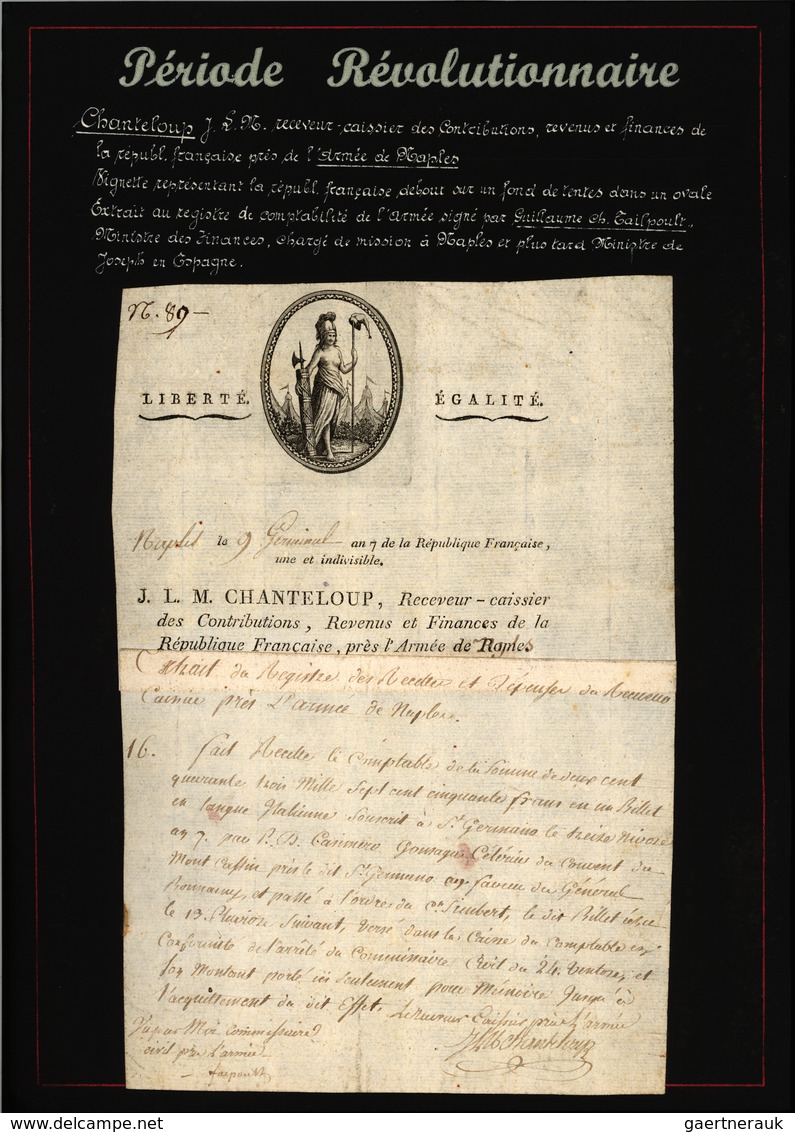 Période Révolutionnaire
Chanteloup J. L. M. receveur-caissier des Contributions, revenus et finances de
la républ. française près de l'Armée de Naples
Vignette représentant la républ. française, debout sur un fond de tentes dans un ovale
Extrait au registre de comptabilité de l'Armée signé par Guillaume Ch. Faipoult.,
Ministre des Finances, chargé de mission à Naples et plus tard Ministre de
Joseph en Espagne.
N. 89-
LIBERTÉ. ÉGALITÉ.
Naples le 9 Germinal an 7 de la République Française,
une et indivisible.
J. L. M. CHANTELOUP, Receveur-caissier
des Contributions, Revenus et Finances de la
République Francaise, près l'Armée de Naples
Extrait du Registre des Recettes et Dépenses du Receveur
Caissier près L'armée de Naples.
16. fait Recette le Comptable de la Somme de deux cent
quarante trois Mille Sept cent cinquante francs en un Billet
en langue Italienne Souscrit à St. Germano le treize Nivose
an 7. par P. D. Casimiro Gonzague Célérier du Couvent du
Mont Cassin près le dit St. Germano en faveur du Général
et passé à l'ordre du le dit Billet
le 13 Pluviose Suivant, versé dans la Caisse du Comptable en
Conformité de l'arrêté du Commissaire Civil du 24 Ventose, et
son Montant porté ici Seulement pour Mémoire Jusqu'à
l'acquittement du dit Effet. Le Receveur Caissier près L'armée
Vu par Moi Commissaire JLMChanteloup
civil près L'armée
faipoult
gaertnerauk